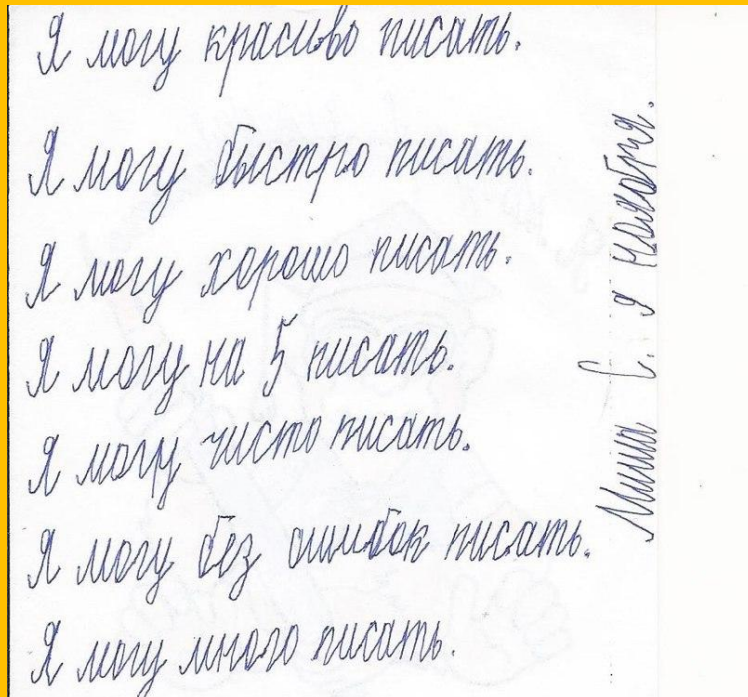 Я могу красиво писать.
Я могу быстро писать.
Я могу хорошо писать.
Я могу на 5 писать.
Я могу чисто писать.
Я могу без ошибок писать.
Я могу много писать.
Миша С. 9 ноября.